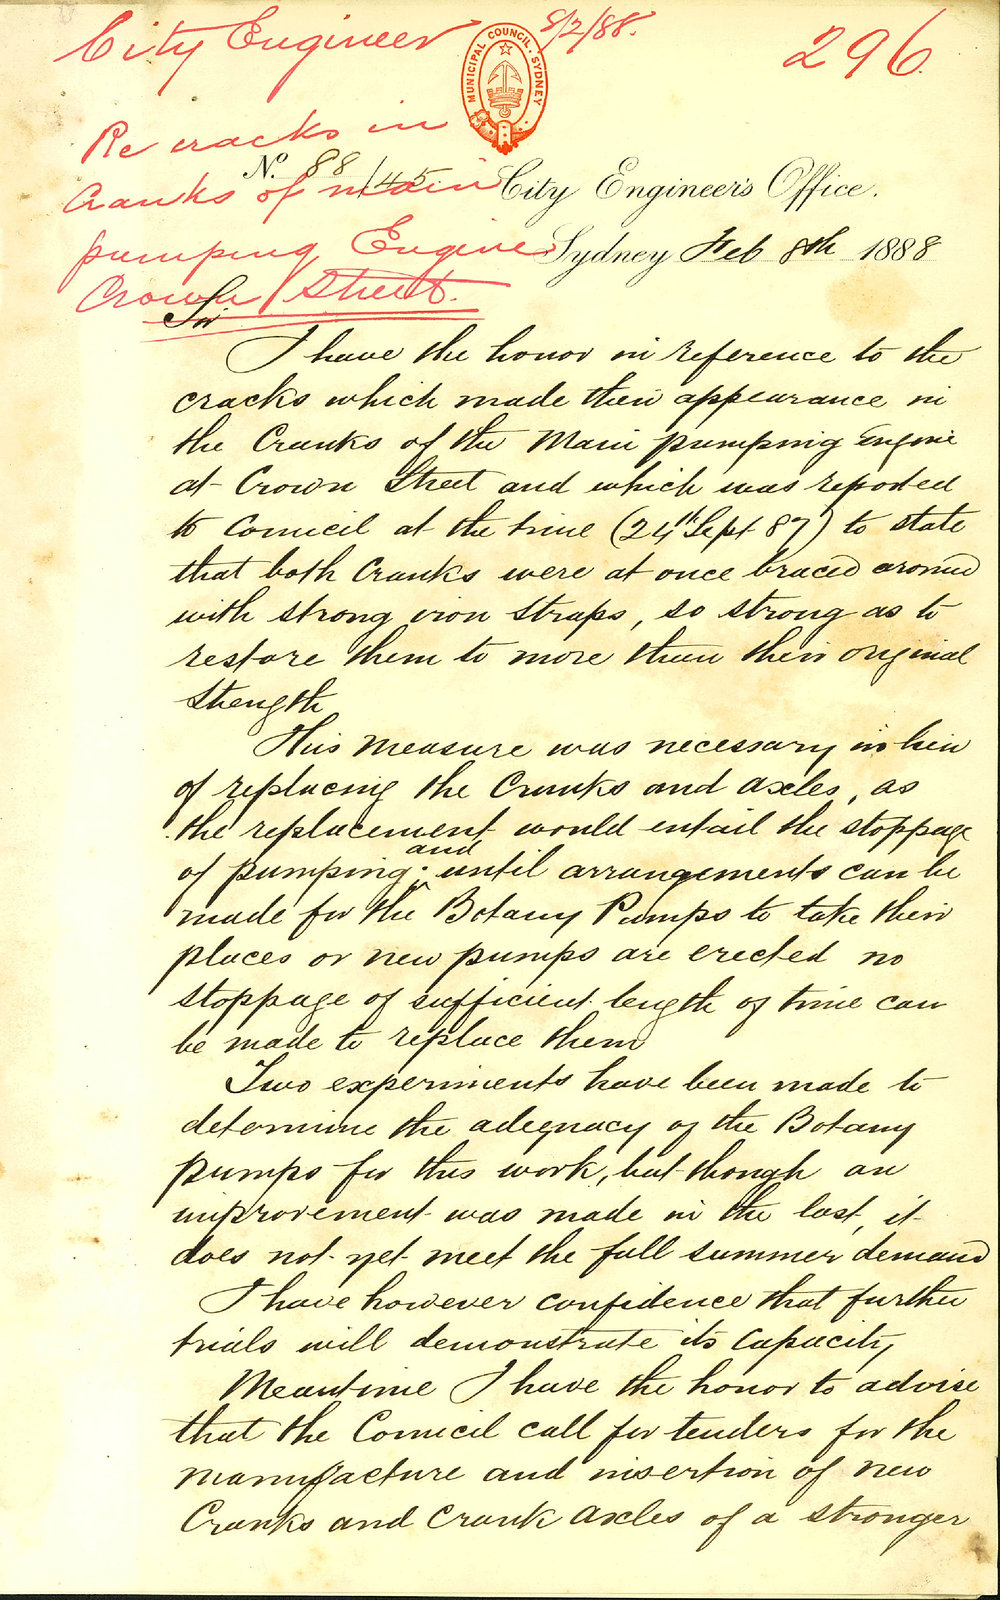 City Engineer 8/2/88.
296.
MUNICIPAL COUNCIL. SYDNEY
Re cracks in
Cranks of main
pumping Engine
Crown Street.
No. 88/145 City Engineer's Office.
Sydney Feb 8th 1888
Sir
I have the honor in reference to the
cracks which made their appearance in
the Cranks of the Main pumping Engine
at Crown Street and which was reported
to Council at the time (24th Sept 87) to state
that both Cranks were at once braced around
with strong iron straps, so strong as to
restore them to more than their original
strength
This measure was necessary in lieu
of replacing the Cranks and axles, as
the replacement would entail the stoppage
of pumping; and until arrangements can be
made for the Botany Pumps to take their
places or new pumps are erected no
stoppage of sufficient length of time can
be made to replace them
Two experiments have been made to
determine the adequacy of the Botany
pumps for this work, but though an
improvement was made in the last, it
does not yet meet the full summer demand
I have however confidence that further
trials will demonstrate its capacity
Meantime I have the honor to advise
that the Council call for tenders for the
manufacture and insertion of new
Cranks and Crank axles of a stronger